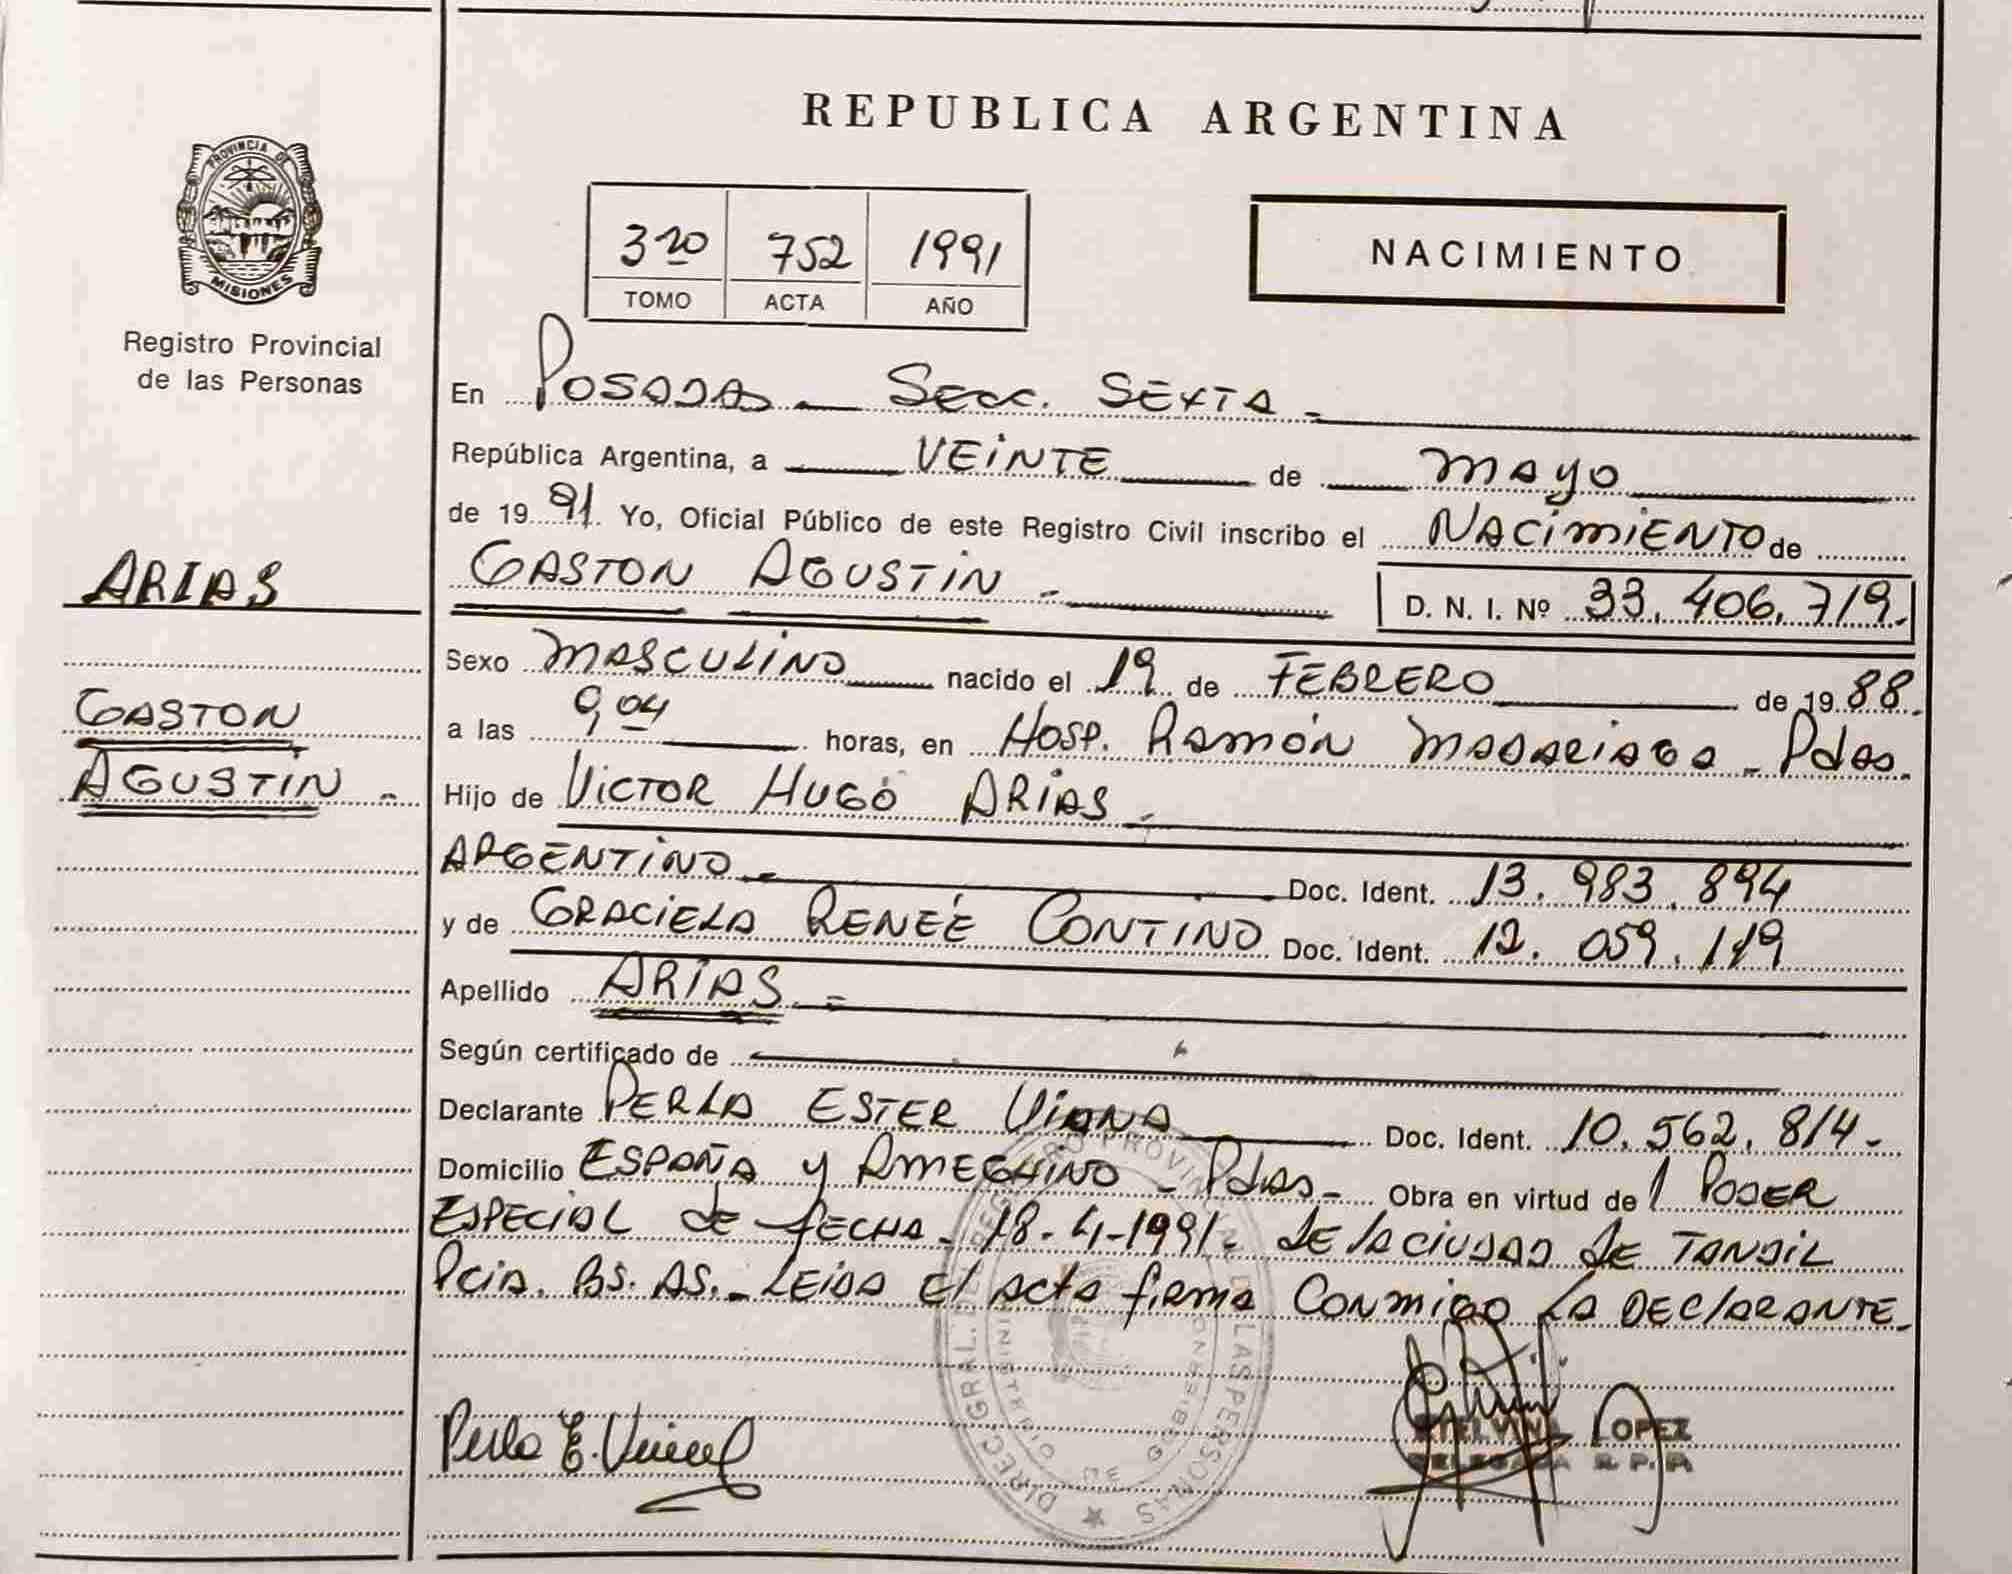 REPUBLICA ARGENTINA
PROVINCIA DE
MISIONES
Registro Provincial
de las Personas
3ro 752 1991
TOMO ACTA AÑO
NACIMIENTO
En POSADAS - Secc. SEXTA -
República Argentina, a VEINTE de MAYO
de 1991. Yo, Oficial Público de este Registro Civil inscribo el NACIMIENTO de
GASTON AGUSTIN - D. N. I. Nº 33.406.719.
ARIAS
GASTON
AGUSTIN -
Sexo MASCULINO nacido el 19 de FEBRERO de 1988.
a las 9,04 horas, en Hosp. RAMÓN MADARIAGA - Pdas.
Hijo de VICTOR HUGO ARIAS -
ARGENTINO - Doc. Ident. 13.983.894
y de GRACIELA RENEÉ CONTINO Doc. Ident. 12.059.119
Apellido ARIAS -
Según certificado de
Declarante PERLA ESTER Viana Doc. Ident. 10.562.814-
Domicilio ESPAÑA y AMEGHINO - Pdas - Obra en virtud de 1 PODER
ESPECIAL de FECHA - 18-4-1991 - de la CIUDAD de TANDIL
Pcia. Bs. As. - LEIDA El Acta firma CONMIGO LA DEClARANTE.
Perla E. Viana
LOPEZ
DELEGADA R. P. P.
DIREC. GRAL. DE REGISTRO PROVINCIAL DE LAS PERSONAS